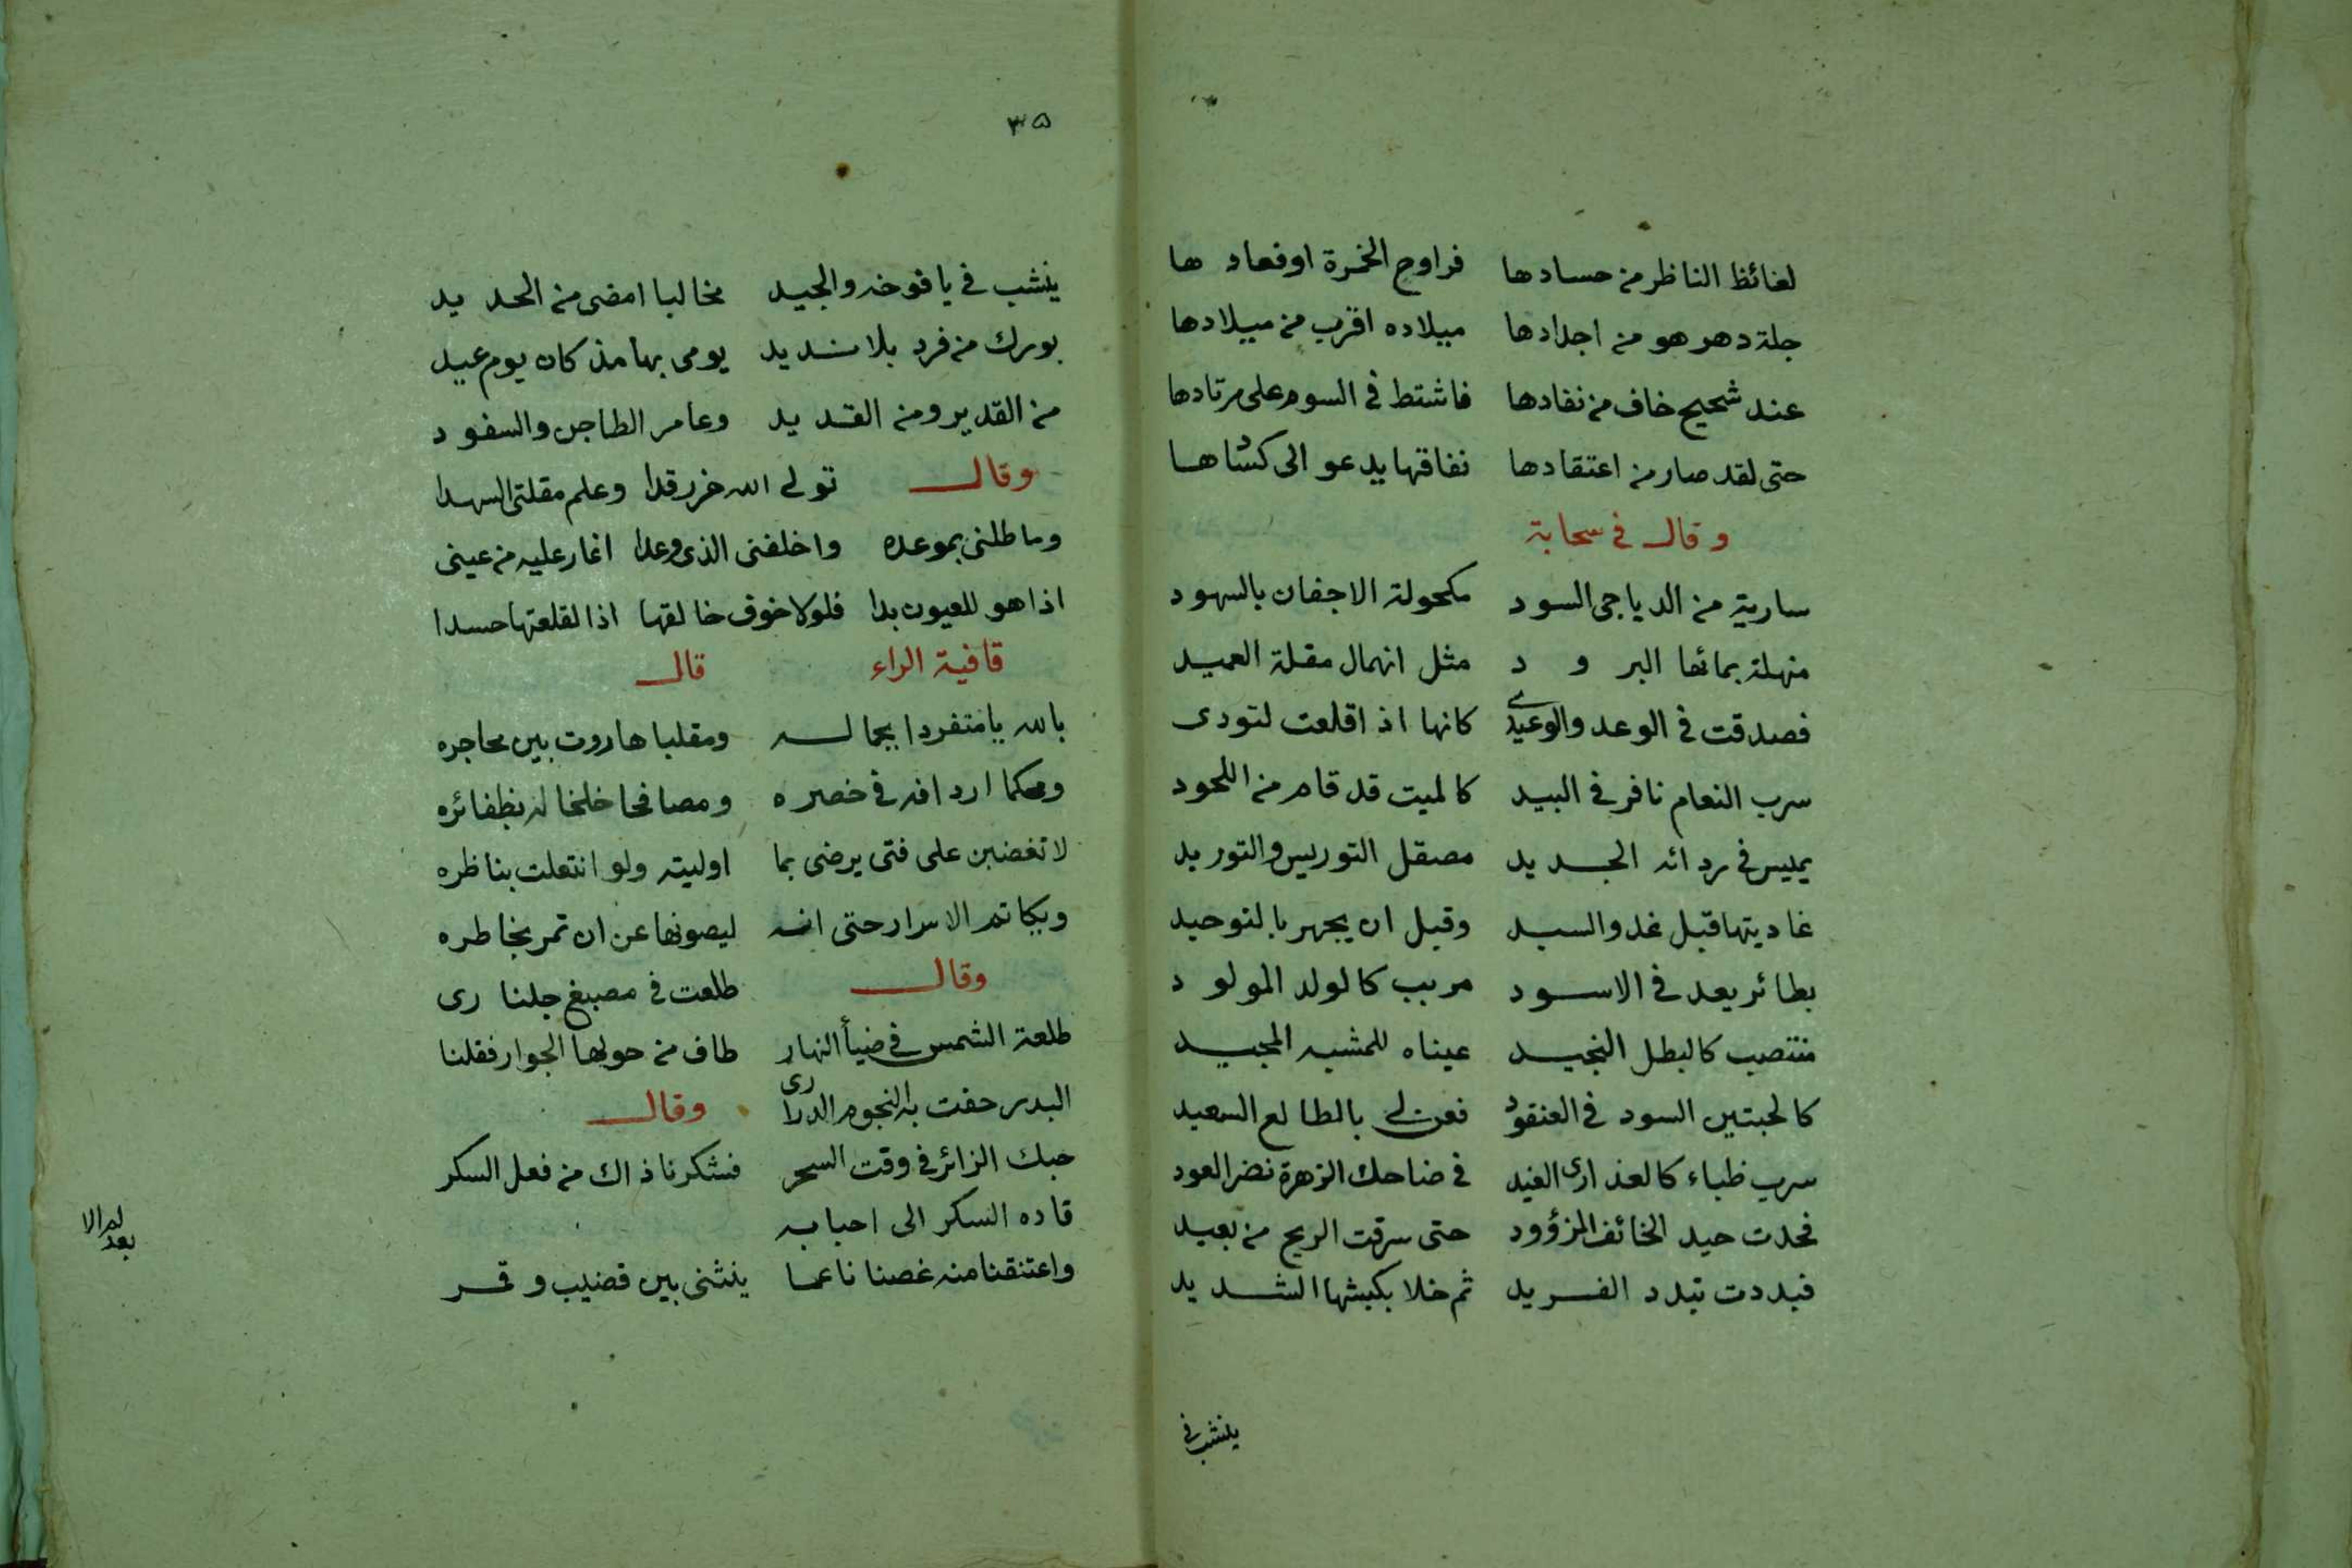 لغائظ الناظر من حسادها فراوح الخمرة اوفعاد ها
جلة دهر هو من اجدادها ميلاده اقرب من ميلادها
عند شحيح خاف من نفادها فاشتط في السوم على مرتادها
حتى لقد صار من اعتقادها نفاقها يدعو الى كسادها
وقال في سحابة
سارية من الدياجى السود مكحولة الاجفان بالسهود
منهلة بمائها البر و د مثل انهمال مقلة العميد
فصدقت في الوعد والوعيد كانها اذ اقلعت لتودى
سرب النعام نافر في البيد كالميت قد قام من اللحود
يميس في ردائه الجديد مصقل التوريس والتوريد
غاديتها قبل غدو السيد وقبل ان يجهر بالتوحيد
بطائر يعد في الاسود مربب كالولد المولو د
منتصب كالبطل النجيد عيناه للمشبه المجيد
كالحبتين السود في العنقود فعن لي بالطالع السعيد
سرب ظباء كالعذارى الغيد في ضاحك الزهرة نضر العود
فحدت حيد الخائف المزؤود حتى سرقت الريح من بعيد
فبددت تبدد الفريد ثم خلا بكبشها الشديد
ينشب في
٣٥
ينشب في يافوخه والجيد مخالبا امضى من الحديد
بورك من فرد بلا نديد يومى بها مذ كان يوم عيد
من القدير ومن القديد وعامر الطاجن والسفود
وقال تولى الله خر رقدا وعلم مقلتى السهدا
وماطلنى بموعده واخلفنى الذى وعدا اغار عليه من عينى
اذا هو للعيون بدا فلولا خوف خالقها اذا لقلعتها حسدا
قافية الراء قال
بالله يا متفردا بجماله ومقلبا هاروت بين محاجره
ومحكما اردافه في خصره ومصافحا خلخاله بظفائره
لا تغضبن على فتى يرضى بما اوليته ولو انتعلت بناظره
ويكاتم الاسرار حتى انه ليصونها عن ان تمر بخاطره
وقال طلعت في مصبغ جلنا رى
طلعة الشمس في ضيأ النهار طاف من حولها الجوار فقلنا
البدر حفت به النجوم الدرارى وقال
حبك الزائر في وقت السحر فشكرنا ذاك من فعل السكر
قاده السكر الى احبابه
واعتنقنا منه غصنا ناعما ينثنى بين قضيب وقمر